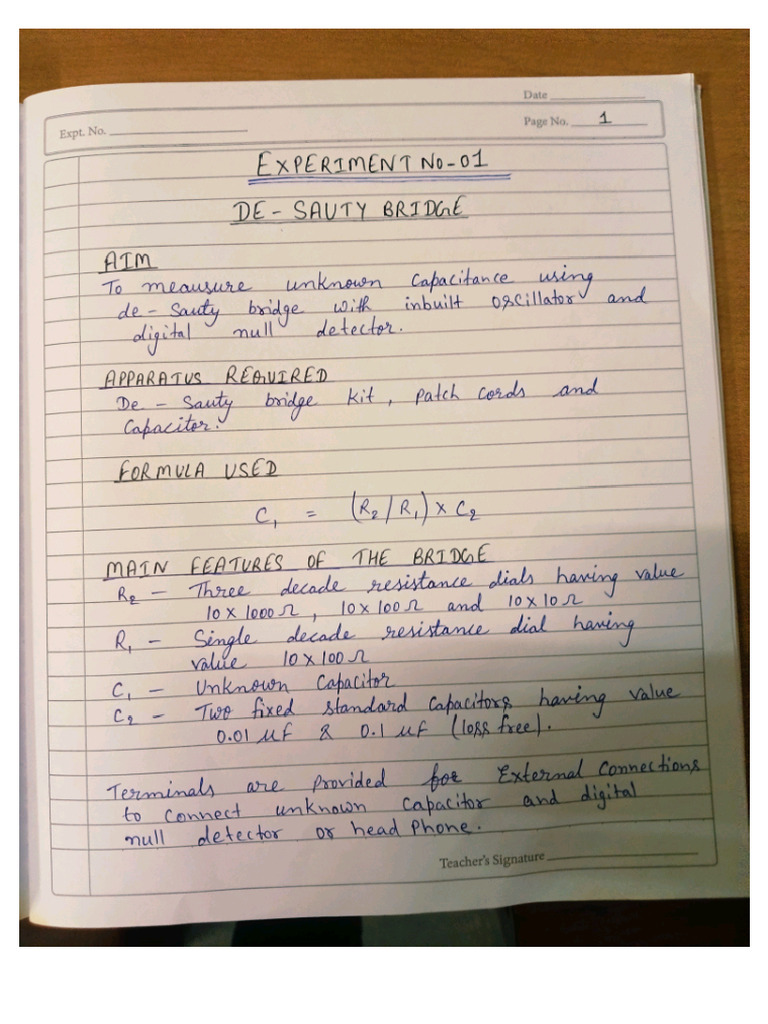 Date
Expt. No.
Page No. 1
EXPERIMENT No-01
DE-SAUTY BRIDGE
AIM
To meausure unknown capacitance using
de-Sauty bridge with inbuilt oscillator and
digital null detector.
APPARATUS REQUIRED
De-Sauty bridge kit, patch cords and
capacitor.
FORMULA USED
C₁ = (R₂/R₁) × C₂
MAIN FEATURES OF THE BRIDGE
R₂ - Three decade resistance dials having value
10×1000Ω, 10×100Ω and 10×10Ω
R₁ - Single decade resistance dial having
value 10×100Ω
C₁ - Unknown Capacitor
C₂ - Two fixed standard capacitors having value
0.01 μf & 0.1 μf (loss free).
Terminals are provided for External connections
to connect unknown capacitor and digital
null detector or head phone.
Teacher's Signature